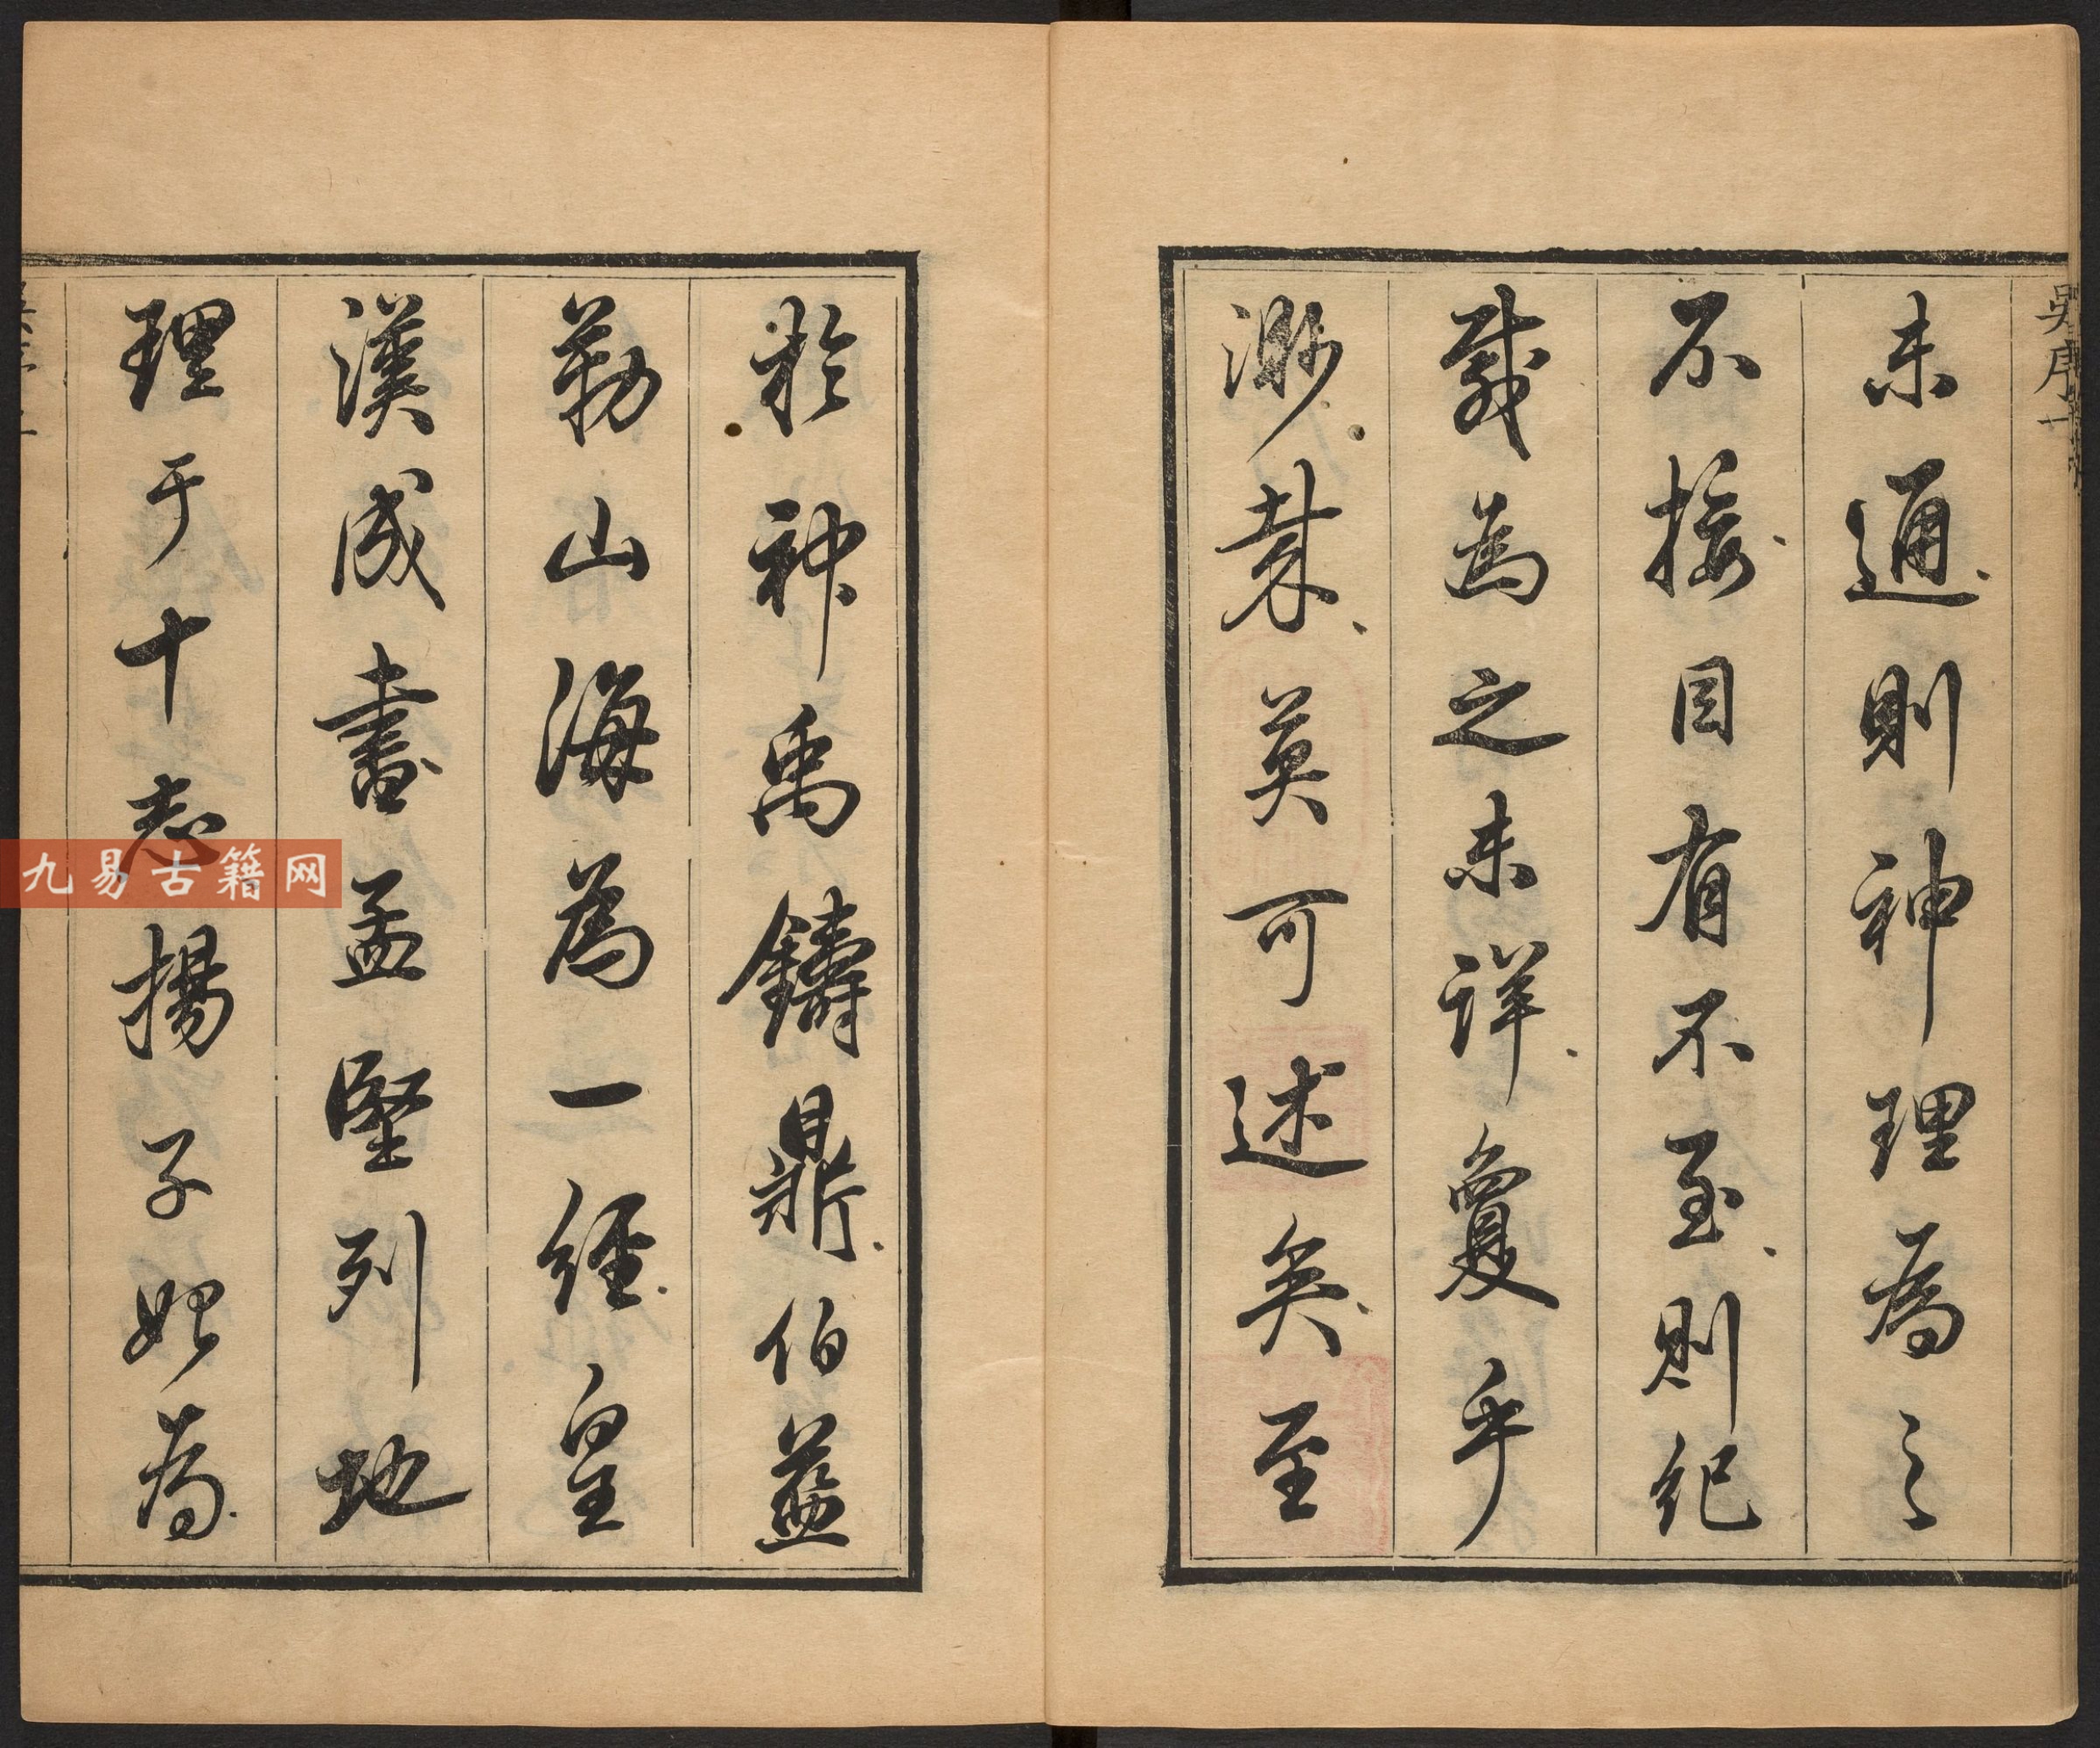 吳序
未通則神理為之
不接目有不至則紀
載為之未詳敻乎
渺哉莫可述矣至
於神禹鑄鼎伯益
勒山海為一經皇
漢成書孟堅列地
理于十志揚子始為
九易古籍网